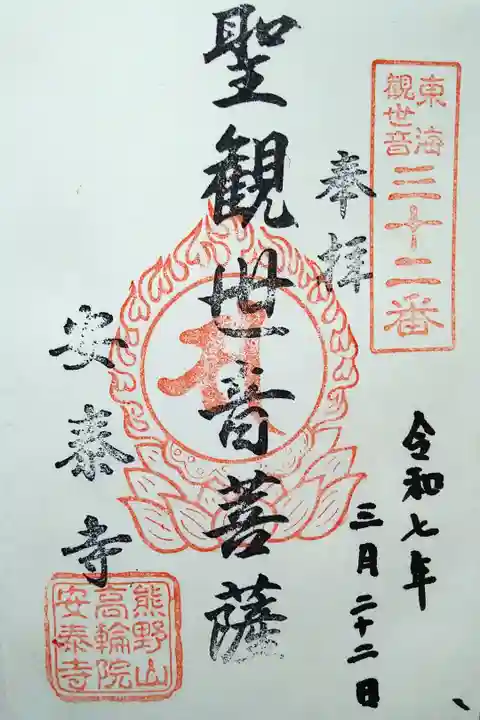 東海
観世音
三十二番
奉拝
令和七年
三月二十二日
聖観世音菩薩
安泰寺
熊野山
高輪院
安泰寺